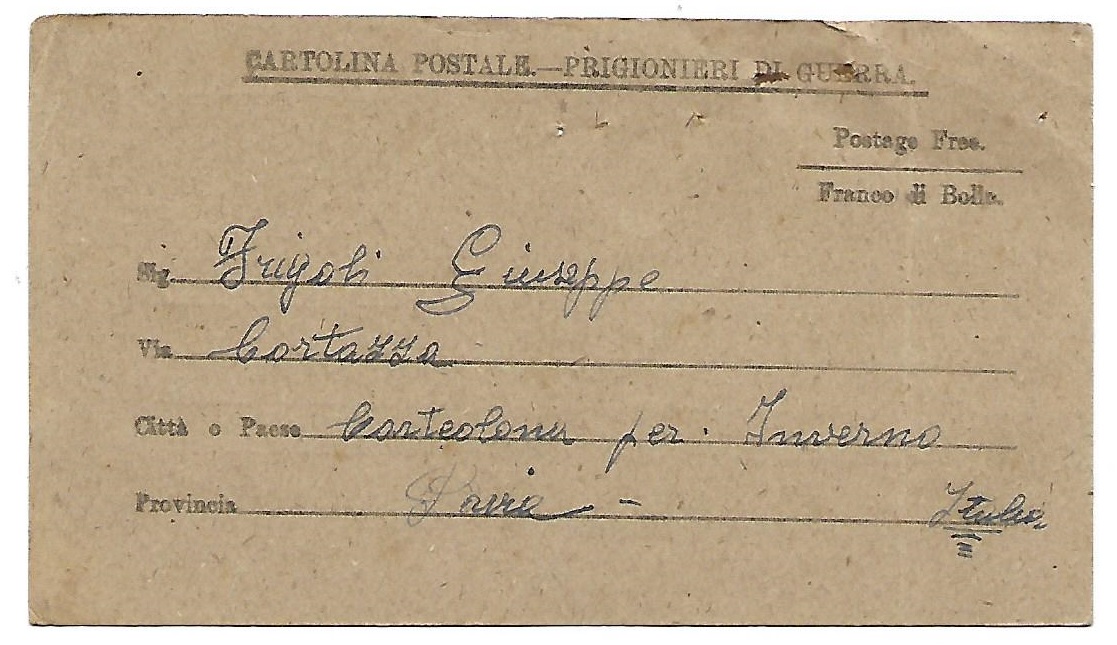 CARTOLINA POSTALE.—PRIGIONIERI DI GUERRA.
Postage Free.
Franco di Bollo.
Sig. Frigoli Giuseppe
Via Cortazza
Città o Paese Corteolona per. Inverno
Provincia Pavia - Italia